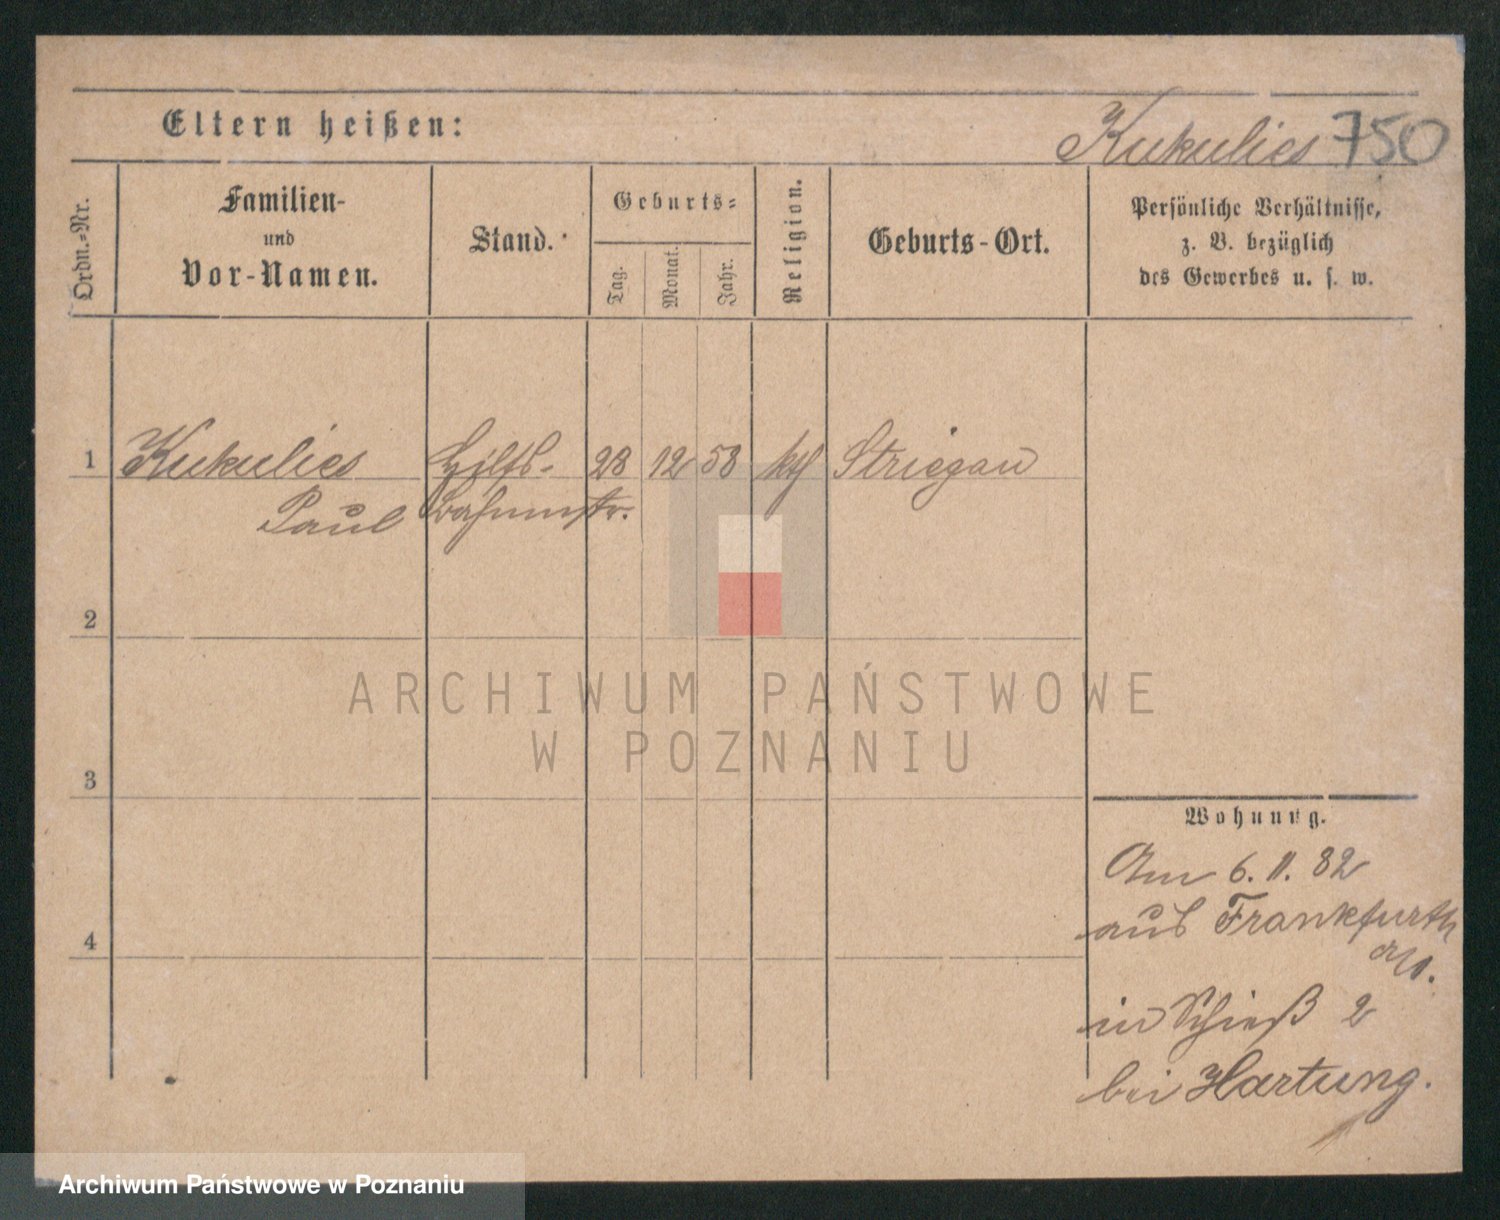 Eltern heißen:
Kukulies 750
Ordn.-Nr.
Familien-
und
Vor-Namen.
Stand.
Geburts-
Tag.
Monat.
Jahr.
Religion.
Geburts-Ort.
Persönliche Verhältnisse,
z. B. bezüglich
des Gewerbes u. s. w.
1 Kukulies Hilfs- 28 12 58 kth Striegau
Paul
2
3
4
Wohnung.
Am 6. 11. 82
aus Frankfurth
a/O.
in Schieß 2
bei Hartung.
ARCHIWUM PAŃSTWOWE
W POZNANIU
Archiwum Państwowe w Poznaniu